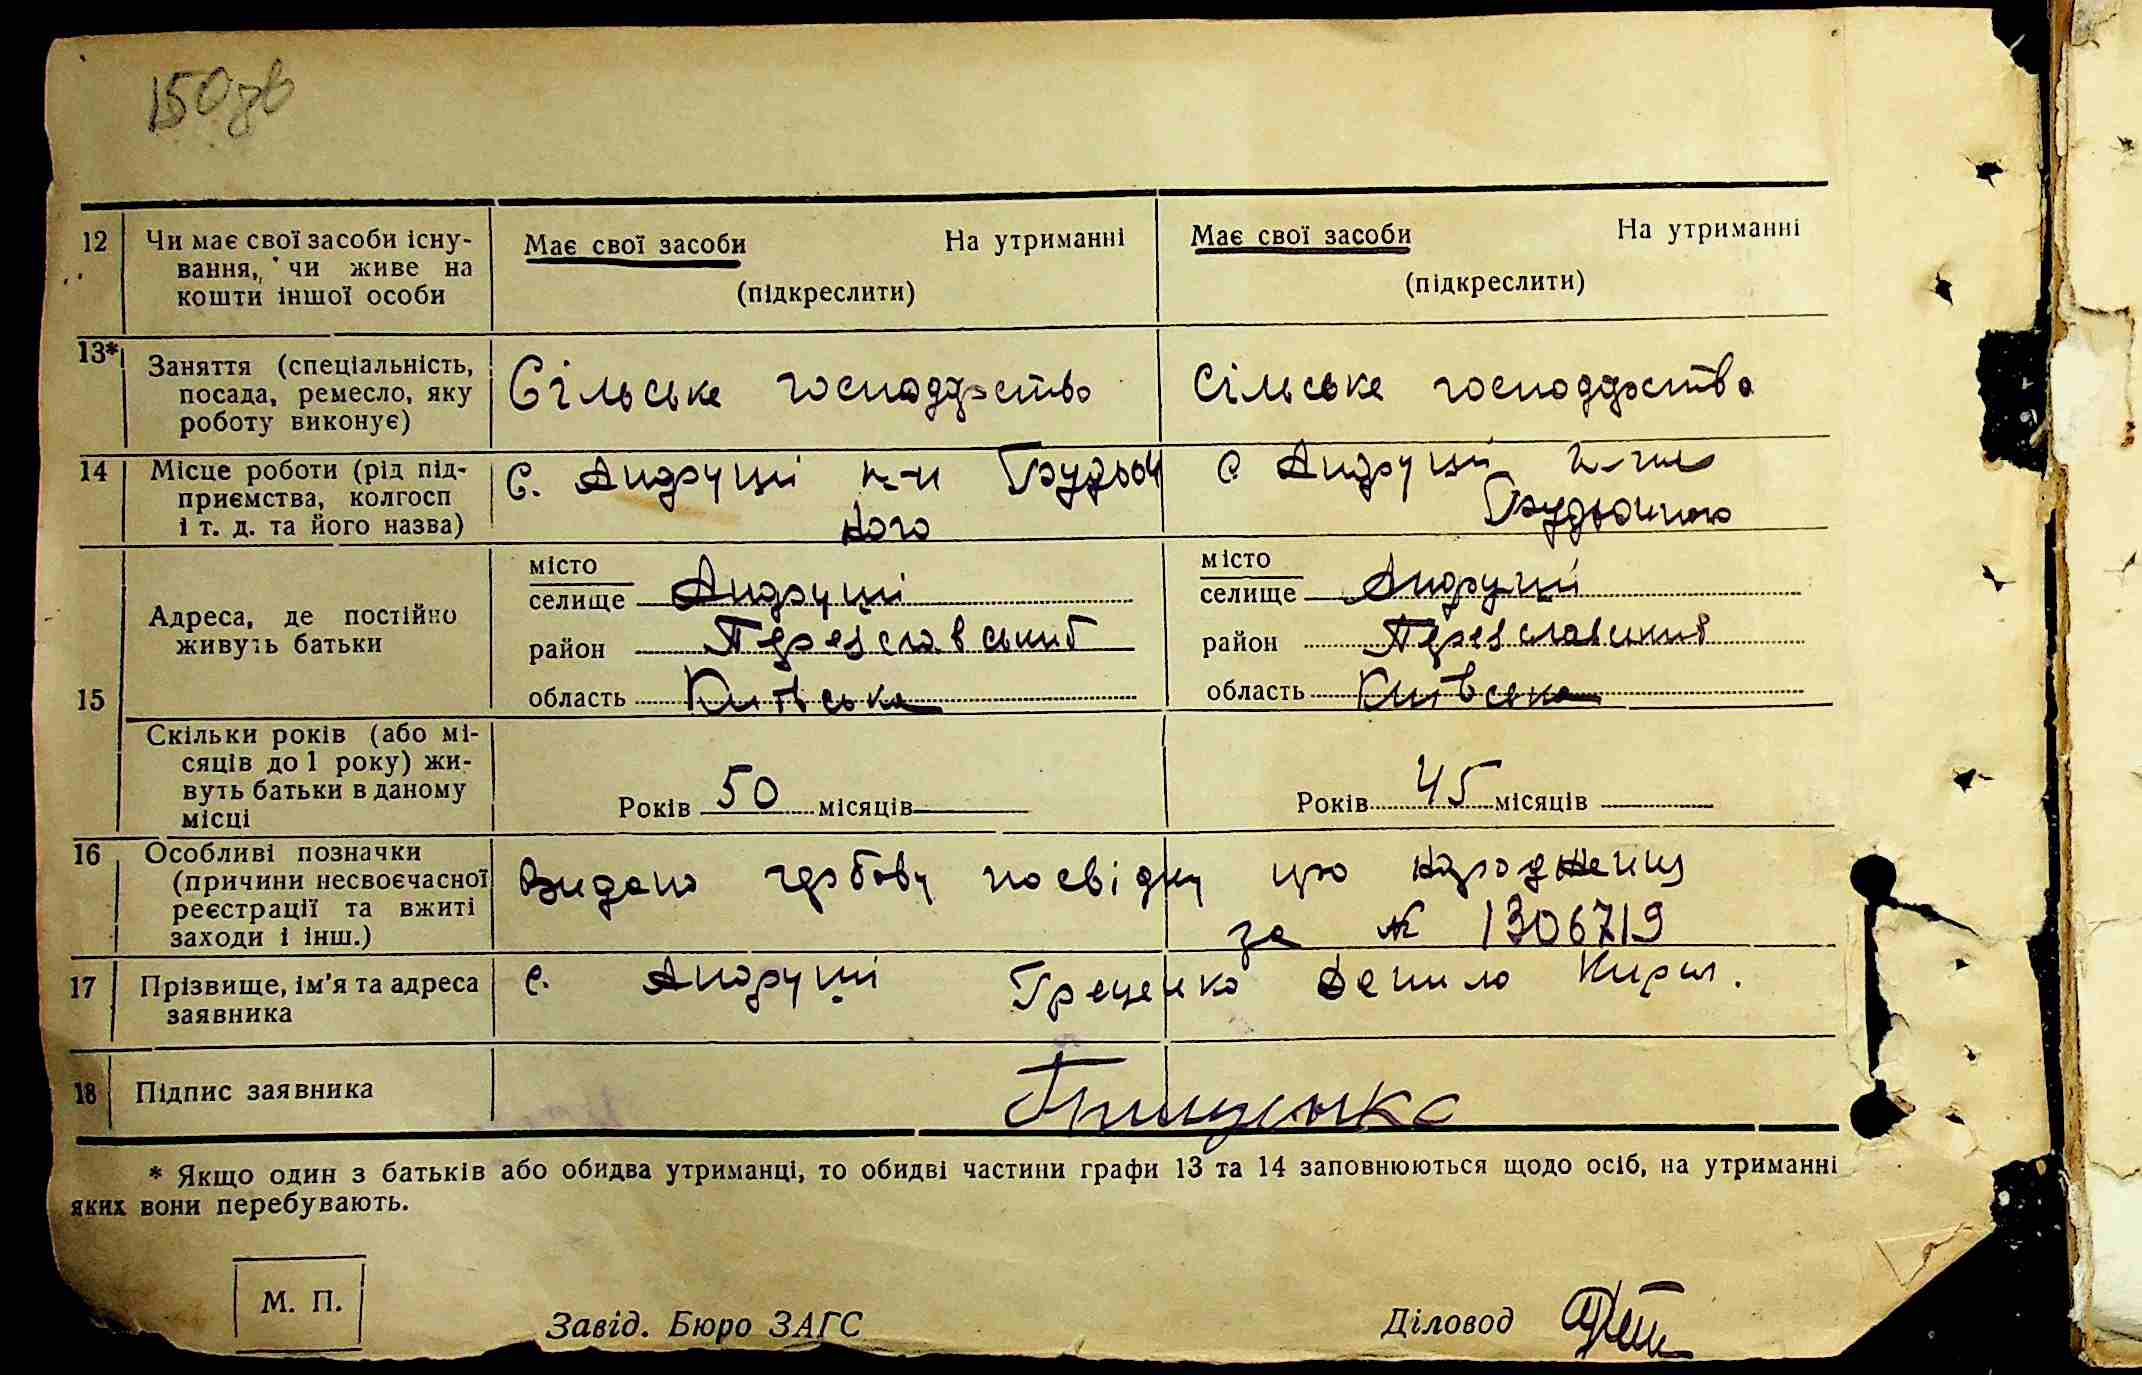 150 зв
12 Чи має свої засоби існу- Має свої засоби На утриманні Має свої засоби На утриманні
вання, чи живе на (підкреслити) (підкреслити)
кошти іншої особи
13* Заняття (спеціальність, Сільське господарство Сільське господарства
посада, ремесло, яку
роботу виконує)
14 Місце роботи (рід під- с. Андруші к-п с Андруші
приємства, колгосп ного
і т. д. та його назва)
15 Адреса, де постійно живуть батьки
місто
селище Андруші
район Переяславський
область Київська
місто
селище Андруші
район Переяславський
область Київська
Скільки років (або мі-
сяців до 1 року) жи-
вуть батьки в даному
місці
Років 50 місяців Років 45 місяців
16 Особливі позначки Видано гербову посвідку про народження
(причини несвоєчасної за № 1306719
реєстрації та вжиті
заходи і інш.)
17 Прізвище, ім'я та адреса с. Андруші Грещенко Данило Кирил.
заявника
18 Підпис заявника
* Якщо один з батьків або обидва утриманці, то обидві частини графи 13 та 14 заповнюються щодо осіб, на утриманні
яких вони перебувають.
М. П.
Завід. Бюро ЗАГС Діловод